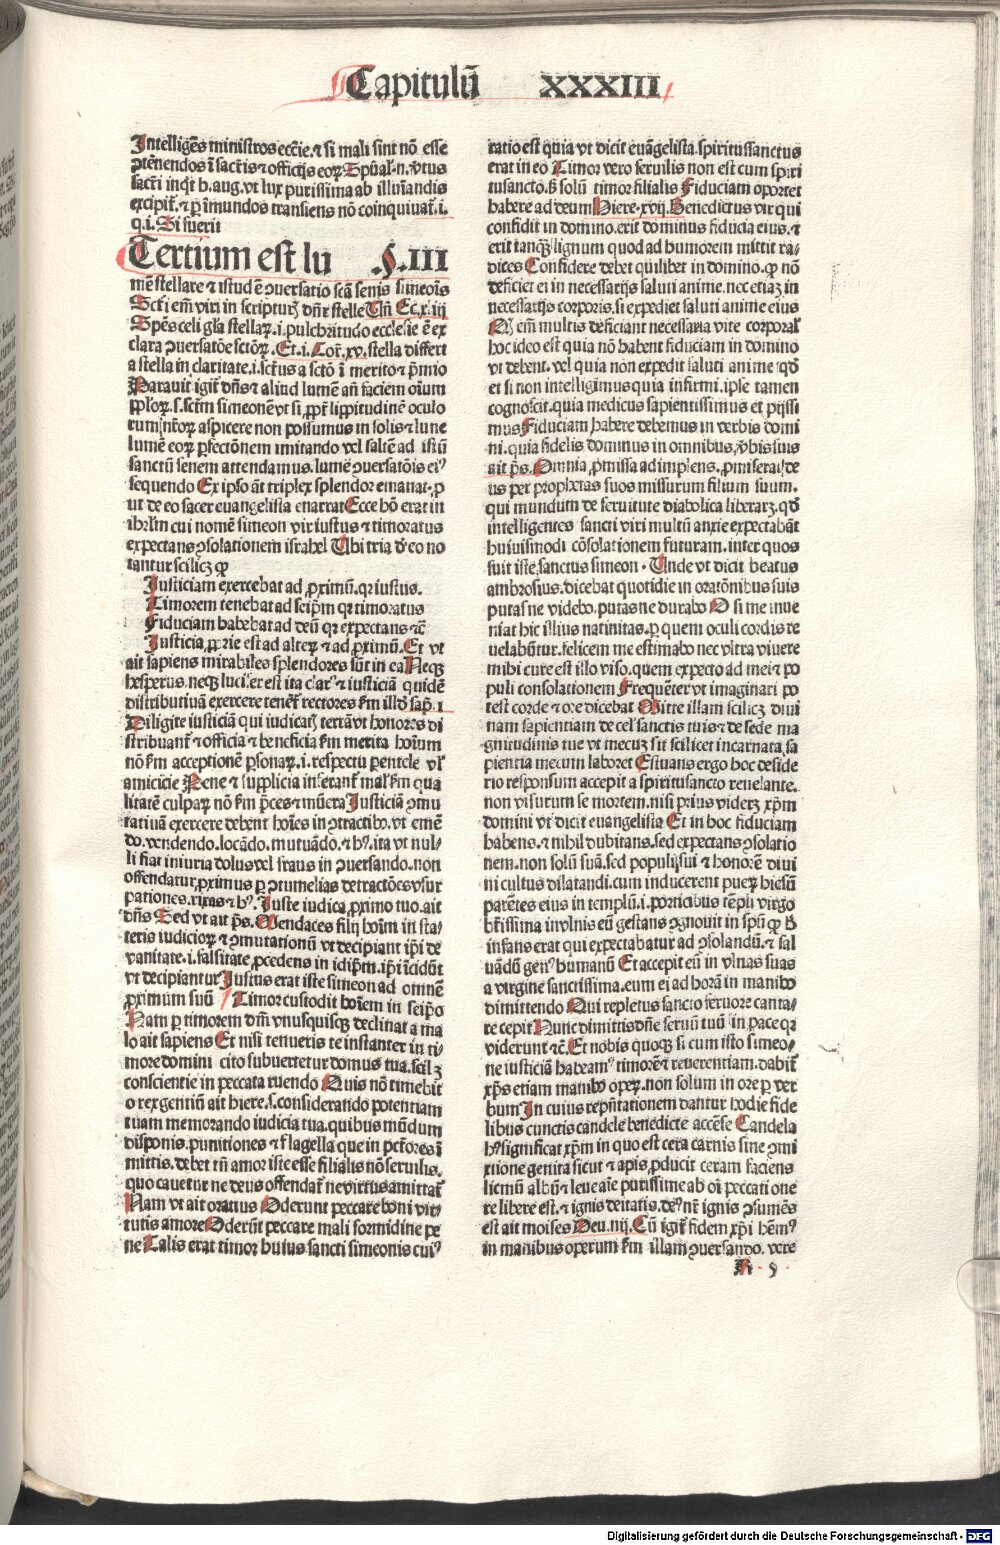 Capitulū XXXIII
Intelligēs ministros eccīe. ⁊ si mali sint nō esse
ꝯtēnendos ī sacris ⁊ officijs eoꝝ. Spūal. n. v̄tus
sacri inq̇t b. aug. vt lux purissima ab illuīandis
excipit̄. ⁊ ꝑ īmundos transiens nō coinquinat̄. i.
q. i. Si fuerit
Tertium est lu §. III
mē stellare ⁊ istud ē ꝯuersatio scā senis simeōis
Scti em̄ viri in scripturꝭ dn̄r stelle Vn̄ Ec. xliij
Spēs celi gl̄a stellaꝝ. i. pulchritudo ecclesie ē ex
clara ꝯuersatōe sctōꝝ. Et. i. Cor. xv. stella differt
a stella in claritate. i. sctus a sctō ī merito ⁊ p̄mio
Parauit igit̄ dn̄s ⁊ aliud lumē an̄ faciem oīum
pploꝝ. s. sctm̄ simeonē vt si ꝓpt̄ lippitudinē oculo
rum nr̄oꝝ aspicere non possumus in solis ⁊ lune
lumē eoꝝ ꝑfectōnem imitando vel saltē ad istū
sanctū senem attendamus. lumē ꝯuersatōis eiꝰ
sequendo Ex ipso aūt triplex splendor emanat. ꝓ
ut de eo sacer euangelista enarrat Ecce hō erat in
ihrl̄m cui nomē simeon vir iustus ⁊ timoratus
expectans ꝯsolationem israhel Vbi tria d̓ eo no
tantur scilicꝫ ꝙ
Justiciam exercebat ad ꝓximū. qꝛ iustus.
Timorem tenebat ad seipm̄ qꝛ timoratus
Fiduciam habebat ad deū qꝛ expectans ⁊c̄
Justicia ꝓprie est ad alteꝝ ⁊ ad ꝓximū. Et vt
ait sapiens mirabiles splendores sūt in ea Neqꝫ
hesperus. neqꝫ lucifer est ita clarꝰ ⁊ iusticiā quidē
distributiuā exercere tenēt̄ rectores ẜm illd̓ sap̄. i
Diligite iusticiā qui iudicatꝭ terrā vt honores di
stribuant̄ ⁊ officia ⁊ beneficia ẜm merita hoīum
nō ẜm acceptionē ꝑsonaꝝ. i. respectu parentele vl̓
amicicie Pene ⁊ supplicia inferant̄ mal̓ ẜm qua
litatē culpaꝝ nō ẜm p̄ces ⁊ mūera Justiciā ꝯmu
tatiuā exercere debent hoīes in ꝯtractibꝰ. vt emē
do. vendendo. locādo. mutuādo. ⁊ hꝰ. ita vt nul-
li fiat iniuria dolus vel fraus in ꝯuersando. non
offendatur ꝓximus ꝑ ꝯtumelias detractōes vsur
pationes. rixas ⁊ hꝰ. Juste iudica ꝓximo tuo. ait
dn̄s Sed vt ait ps̄. Mendaces filij hoīm in sta-
teris iudicioꝝ ⁊ ꝯmutationū vt decipiant ip̄i de
vanitate. i. falsitate ꝓcedens in idip̄m. ip̄i īcidūt
vt decipiantur Justus erat iste simeon ad omnē
ꝓximum suū Timor custodit hoīem in seip̄o
Nam ꝑ timorem dn̄i vnusquisqꝫ declinat a ma
lo ait sapiens Et nisi tenueris te instanter in ti-
more domini cito subuertetur domus tua. scilꝫ
conscientie in peccata ruendo Quis nō timebit
o rex gentiū ait hiere. s. considerando potentiam
tuam memorando iudicia tua. quibus mūdum
disponis. punitiones ⁊ flagella que in pctōres ī
mittis. debet tn̄ amor iste esse filialis nō seruilis.
quo cauetur ne deus offendat̄ ne virtus amittat̄
Nam vt ait oratius Oderunt peccare boni vir-
tutis amore Oderūt peccare mali formidine pe
ne Talis erat timor huius sancti simeonis cuiꝰ
ratio est quia vt dicit euāgelista. spiritussanctus
erat in eo Timor vero seruilis non est cum spiri
tusancto. ß solū timor filialis Fiduciam oportet
habere ad deum Hiere. xvij. Benedictus vir qui
confidit in domino. erit dominus fiducia eius. ⁊
erit tanqꝫ lignum quod ad humorem mittit ra-
dices Confidere debet quilibet in domino. ꝙ nō
deficiet ei in necessarijs saluti anime. nec etiaꝫ in
necessarijs corporis. si expediet saluti anime eius
Q em̄ multis deficiant necessaria vite corporal̓
hoc ideo est quia nō habent fiduciam in domino
vt debent. vel quia non expedit saluti anime qd̓
et si non intelligimus quia infirmi. ipse tamen
cognoscit. quia medicus sapientissimus et pijssi
mus Fiduciam habere debemus in verbis domi
ni. quia fidelis dominus in omnibus v̓bis suis
ait ps̄. Omnia ꝓmissa adimplens. ꝓmiserat de
us per prophetas suos missurum filium suum.
qui mundum de seruitute diabolica liberarꝫ. qd̓
intelligentes sancti viri multū anxie expectabāt
huiusmodi cōsolationem futuram. inter quos
fuit iste sanctus simeon. Vnde vt dicit beatus
ambrosius. dicebat quotidie in oratōnibus suis
putasne videbo. putasne durabo O si me inue
niat hic illius natiuitas. ꝑ quem oculi cordis re
uelabūtur. felicem me estimabo nec vltra viuere
mihi cure est illo viso. quem expecto ad mei ⁊ po
puli consolationem Frequēter vt imaginari po
test corde ⁊ ore dicebat Mitte illam scilicꝫ diui
nam sapientiam de cel̓ sanctis tuis ⁊ de sede ma
gnitudinis tue vt mecuꝫ sit scilicet incarnata. sa
pientia mecum laboret Estuans ergo hoc deside
rio responsum accepit a spiritusancto reuelante.
non visurum se mortem. nisi prius viderꝫ xp̄m
domini vt dicit euangelista Et in hoc fiduciam
habens. ⁊ nihil dubitans. sed expectans ꝯsolatio
nem. non solū suā. sed populi sui ⁊ honorē diui
ni cultus dilatandi. cum inducerent pueꝝ hiesū
parētes eius in templū. i. porticibus tēpli virgo
btīssima in vlnis eū gestans ꝯgnouit in spū ꝙ ß
infans erat qui expectabatur ad ꝯsolandū. ⁊ sal
uādū genꝰ humanū Et accepit eū in vlnas suas
a virgine sanctissima. eum ei ad horā in manibꝰ
dimittendo Qui repletus sancto feruore canta-
re cepit Nunc dimittis dn̄e seruū tuū in pace qꝛ
viderunt ⁊c̄. Et nobis quoqꝫ si cum isto simeo-
ne iusticiā habeamꝰ timorē ⁊ reuerentiam. dabit̄
xp̄s etiam manibꝰ opeꝝ. non solum in ore ꝑ ver
bum In cuius rep̄ntationem dantur hodie fide
libus cunctis candele benedicte accēse Candela
hꝰ significat xp̄m in quo est cera carnis sine ꝯmi
xtione genita sicut ⁊ apis ꝓducit ceram faciens
licmū albū ⁊ leue aīe purissime ab oī peccati one
re libere est. ⁊ ignis deitatis. deꝰ nr̄ ignis ꝯsumēs
est ait moises Deu. iiij. Cū igit̄ fidem xp̄i hēmꝰ
in manibus operum ẜm illam ꝯuersando. vere
Digitalisierung gefördert durch die Deutsche Forschungsgemeinschaft - DFG